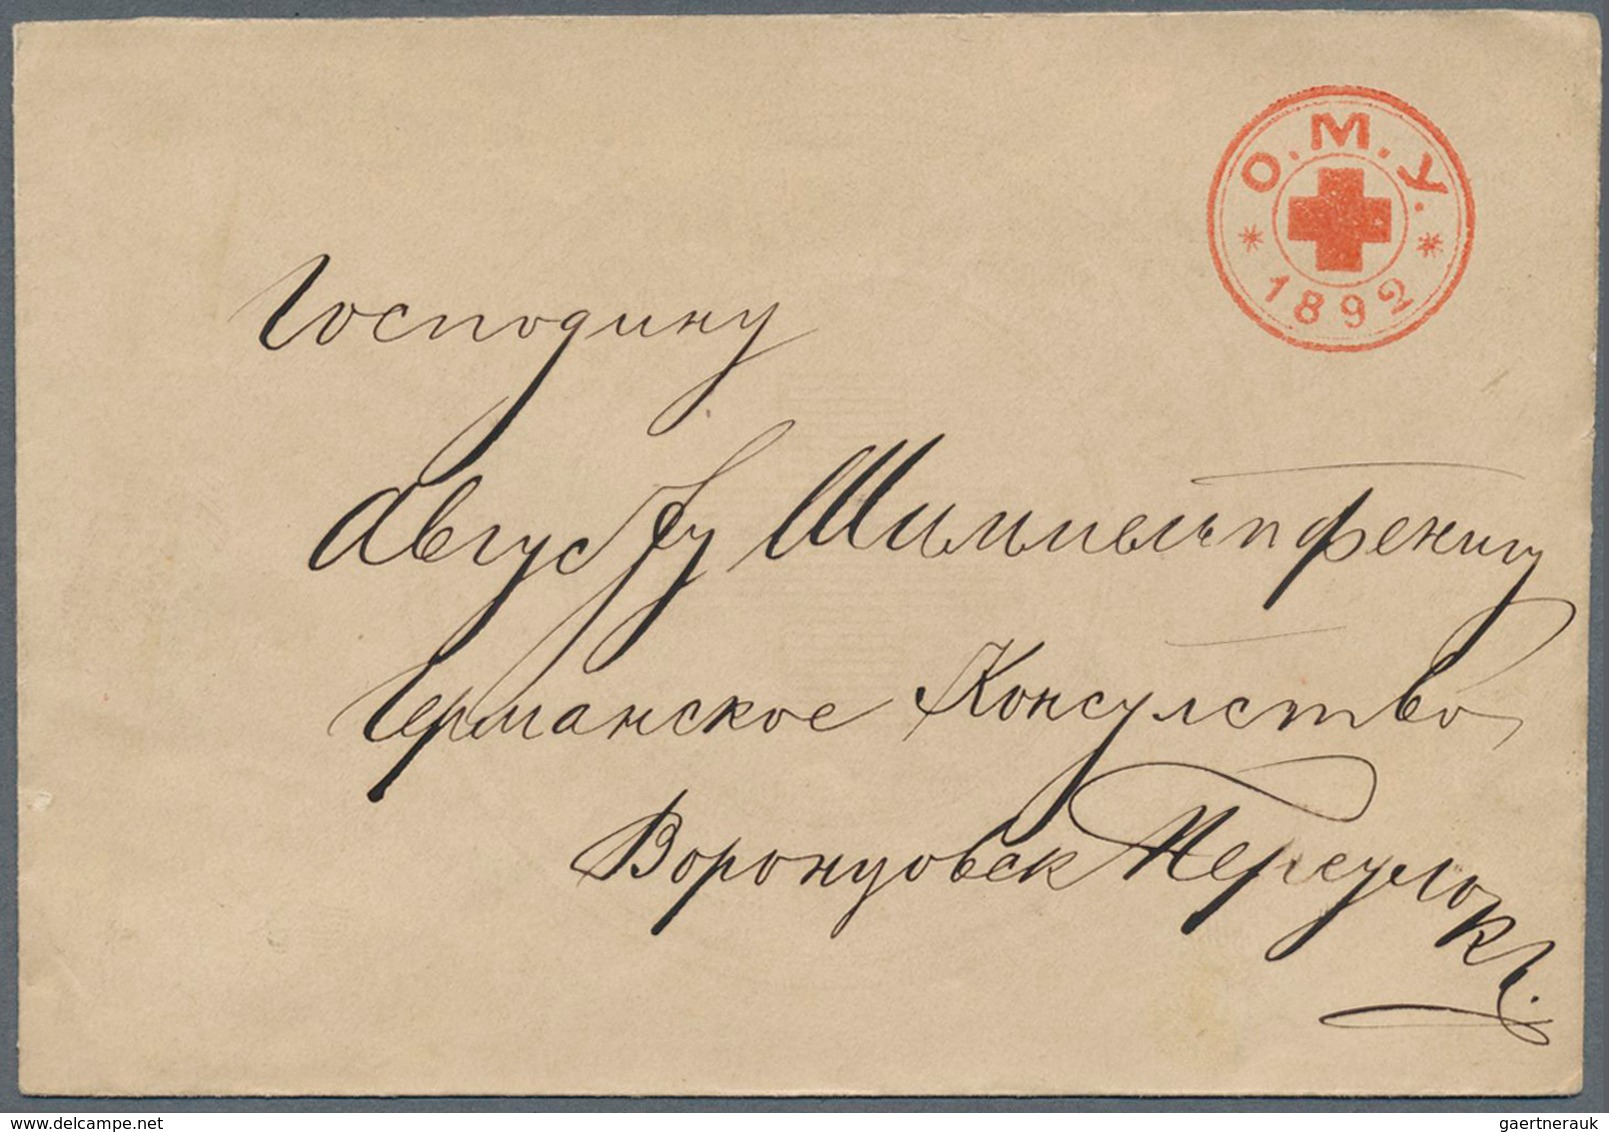 О. М. У.
1892
Господину
Августу Шиммельпфенигу
Германское Консулство
Воронцовск Переулокъ.
gaertnerauk
delcampe.net